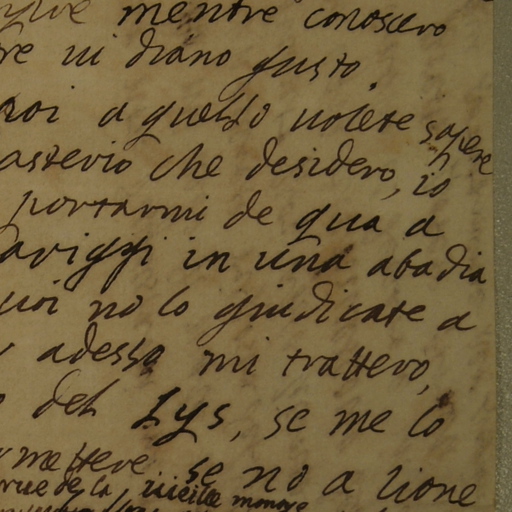 mentre conoscero
re ui diano gusto.
a quello uolete sapere
asterio che desidero, io
portarmi de qua a
ariggi in una abadia
uoi no lo giudicate a
adesso mi trattero,
del Lys, se me lo
mettere se no a Lione
de la